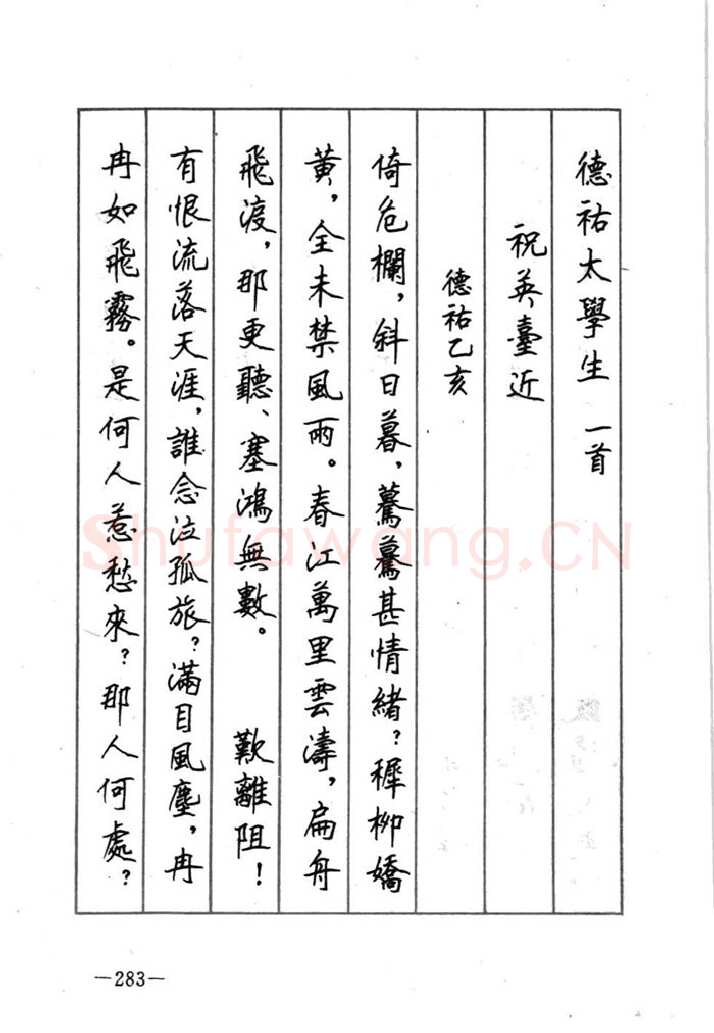 德祐太學生 一首
祝英臺近
德祐乙亥
倚危欄，斜日暮，驀驀甚情緒？稺柳嬌
黃，全未禁風雨。春江萬里雲濤，扁舟
飛渡，那更聽、塞鴻無數。 歎離阻！
有恨流落天涯，誰念泣孤旅？滿目風塵，冉
冉如飛霧。是何人惹愁來？那人何處？
Shufawang.CN
—283—